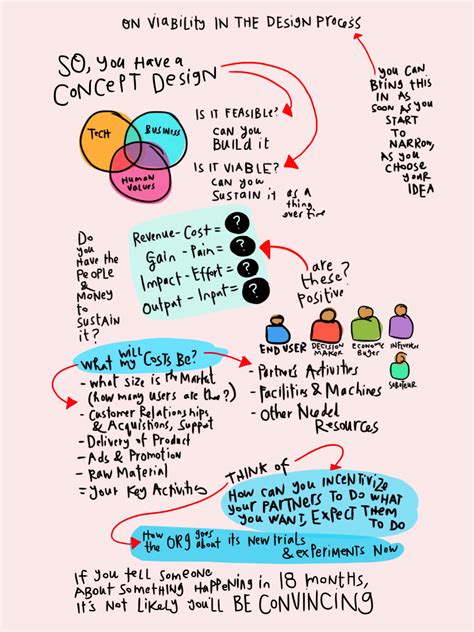 ON VIABILITY IN THE DESIGN PROCESS
SO, YOU HAVE A
CONCEPT DESIGN
YOU CAN
BRING THIS
IN AS
SOON AS YOU
START
TO
NARROW,
AS YOU
CHOOSE
YOUR
IDEA
TECH
BUSINESS
HUMAN
VALUES
IS IT FEASIBLE?
CAN YOU
BUILD IT
IS IT VIABLE?
CAN YOU
SUSTAIN it
AS A
THING
OVER TIME
Do
you
HAVE THE
PEOPLE
&
MONEY
to
SUSTAIN
iT?
Revenue - Cost = ?
Gain - Pain = ?
Impact - Effort = ?
Output - Input = ?
are
these?
Positive
END USER
DECISION
MAKER
ECONOMIC
BUYER
INFLUENCER
SABOTEUR
What will
my COSTS BE?
- What size is the Market
(how many users are there?)
- Customer Relationships,
& Acquistions, Support
- Delivery of Product
- Ads & Promotion
- Raw Material
= your Key Activities
- Partners Activities
- Facilities & Machines
- Other Needed
Resources
THINK OF
HOW CAN YOU INCENTIVIZE
YOUR PARTNERS TO DO WHAT
YOU WANT, EXPECT THEM
TO DO
How
the ORG goes
about its NEW TRIALS
& EXPERIMENTS NOW
If you tell someone
About something happening in 18 months,
it's not likely you'll BE CONVINCING